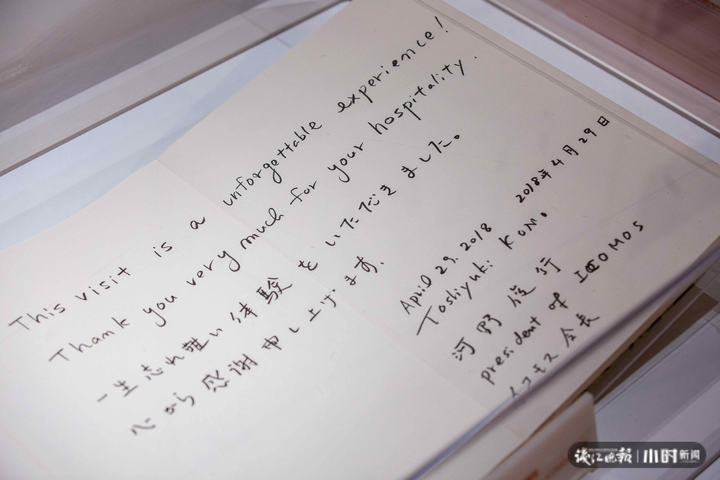 This visit is a unforgettable experience!
Thank you very much for your hospitality.
一生忘れ難い体験をいただきました。
心から感謝申し上げます。
April 29. 2018 2018年4月29日
Toshiyuki KONO
河野俊行
president of ICOMOS
イコモス会長
钱江晚报 小时新闻